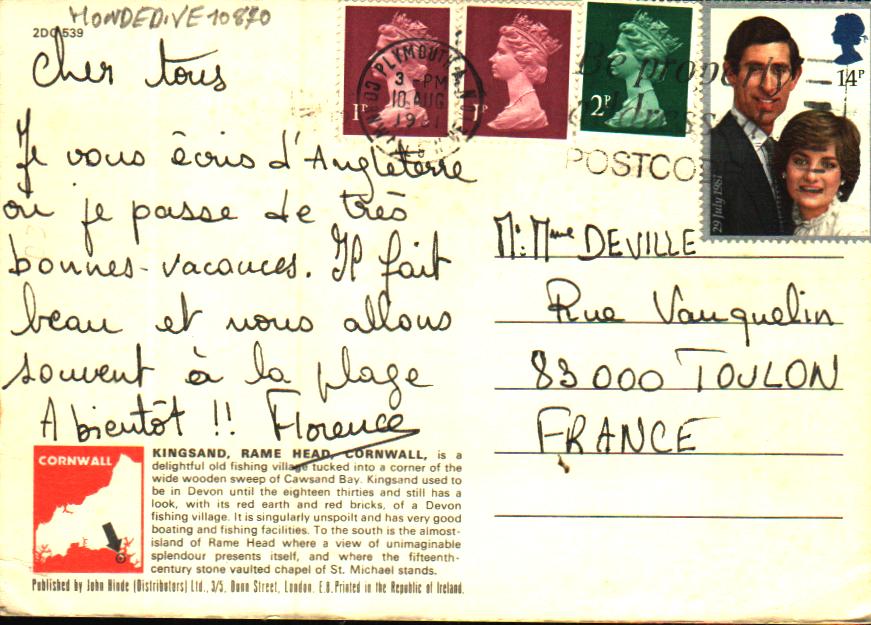 MONDEDIVE10870
2DC 539
Cher tous
Je vous écris d'Angleterre
ou je passe de très
bonnes-vacances. Il fait
beau et nous allons
souvent à la plage
A bientôt !! Florence
1P
1P
2P
14P
29 July 1981
PLYMOUTH
3 - PM
10 AUG
1981
CORNWALL
Be properly
address
POSTCO
Mr. Mme DEVILLE
Rue Vauquelin
83000 TOULON
FRANCE
CORNWALL
KINGSAND, RAME HEAD, CORNWALL, is a
delightful old fishing village tucked into a corner of the
wide wooden sweep of Cawsand Bay. Kingsand used to
be in Devon until the eighteen thirties and still has a
look, with its red earth and red bricks, of a Devon
fishing village. It is singularly unspoilt and has very good
boating and fishing facilities. To the south is the almost-
island of Rame Head where a view of unimaginable
splendour presents itself, and where the fifteenth-
century stone vaulted chapel of St. Michael stands.
Published by John Hinde (Distributors) Ltd., 3/5, Dunn Street, London. E.8. Printed in the Republic of Ireland.